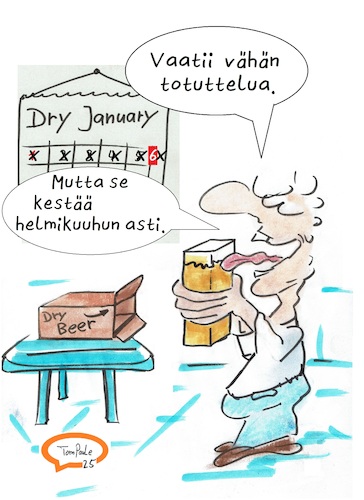 Vaatii vähän
totuttelua.
Dry January
Mutta se
kestää
helmikuuhun asti.
Dry
Beer
Tom Paule
25